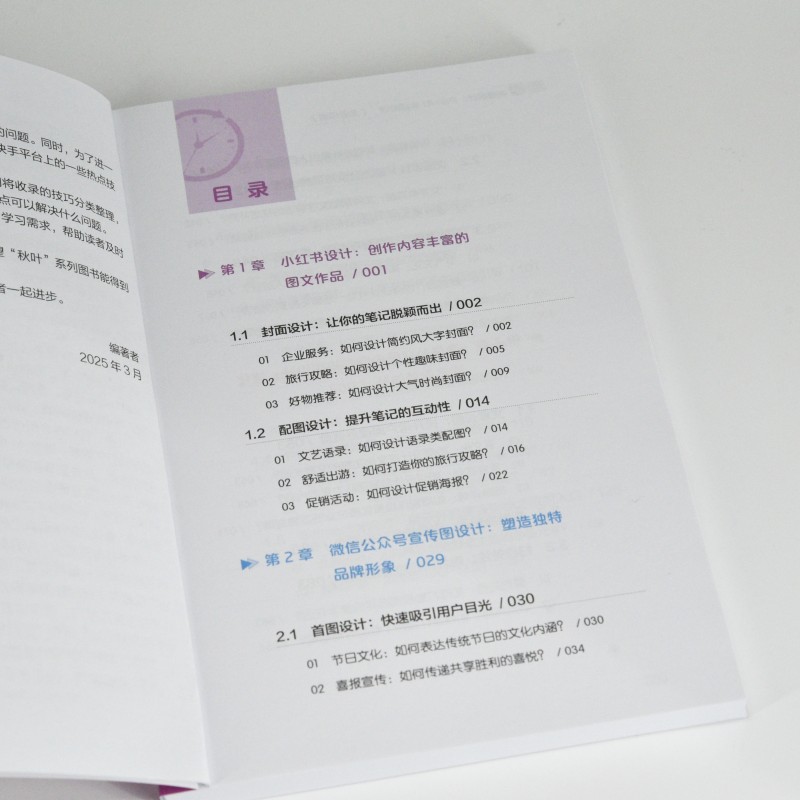 的问题。同时，为了进一
快手平台上的一些热点技
将收录的技巧分类整理，
点可以解决什么问题。
学习需求，帮助读者及时
“秋叶”系列图书能得到
者一起进步。
编著者
2025年3月
目录
第1章 小红书设计：创作内容丰富的
图文作品 /001
1.1 封面设计：让你的笔记脱颖而出 /002
01 企业服务：如何设计简约风大字封面？ /002
02 旅行攻略：如何设计个性趣味封面？ /005
03 好物推荐：如何设计大气时尚封面？ /009
1.2 配图设计：提升笔记的互动性 /014
01 文艺语录：如何设计语录类配图？ /014
02 舒适出游：如何打造你的旅行攻略？ /016
03 促销活动：如何设计促销海报？ /022
第2章 微信公众号宣传图设计：塑造独特
品牌形象 /029
2.1 首图设计：快速吸引用户目光 /030
01 节日文化：如何表达传统节日的文化内涵？ /030
02 喜报宣传：如何传递共享胜利的喜悦？ /034